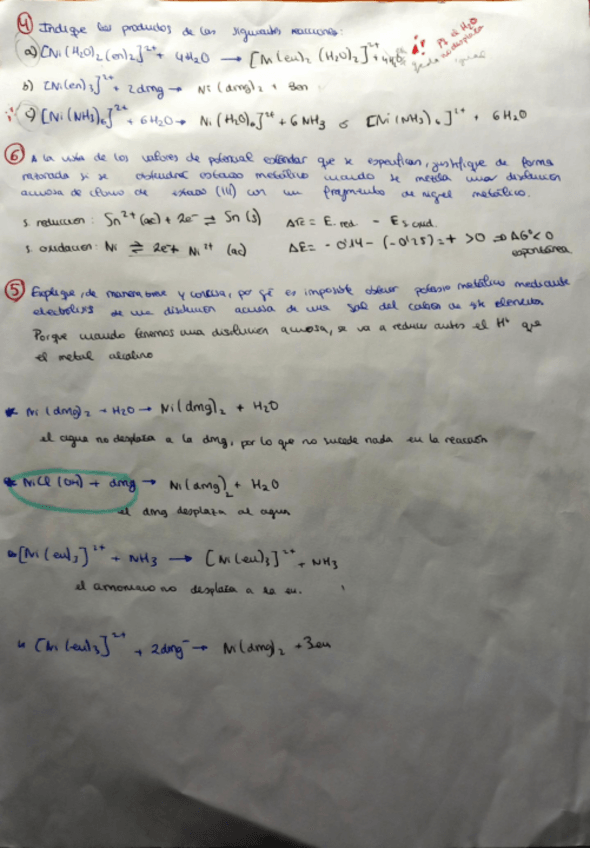 4) Indique los productos de las siguientes reacciones:
a) [Ni(H2O)2(en)2]²⁺ + 4H2O → [Ni(en)2(H2O)2]²⁺ + 4H2O ¡! Pq el H2O no desplaza
queda igual
b) [Ni(en)3]²⁺ + 2dmg → Ni(dmg)2 + 3en
¡! c) [Ni(NH3)6]²⁺ + 6H2O → Ni(H2O)6]²⁺ + 6NH3 ó [Ni(NH3)6]²⁺ + 6H2O
6) A la vista de los valores de potencial estándar que se especifican, justifique de forma
razonada si se obtendrá estaño metálico cuando se mezcla una disolución
acuosa de cloruro de estaño (II) con un fragmento de níquel metálico.
s. reducción: Sn²⁺(ac) + 2e⁻ ⇌ Sn (s) ΔE = E. red. - E s. oxid.
s. oxidación: Ni ⇌ 2e⁻ + Ni²⁺ (ac) ΔE = -0'14 - (-0'25) = + > 0 ⇒ ΔG° < 0
espontánea
5) Explique, de manera breve y concisa, por qé es imposible obtener potasio metálico mediante
electrólisis de una disolución acuosa de una sal del catión de ste elemento
Porque cuando tenemos una disolución acuosa, se va a reducir antes el H⁺ que
el metal alcalino
* Ni(dmg)2 + H2O → Ni(dmg)2 + H2O
el agua no desplaza a la dmg, por lo que no sucede nada en la reacción
* NiCl (OH) + dmg → Ni(dmg)2 + H2O
el dmg desplaza al agua
[Ni(en)3]²⁺ + NH3 → [Ni(en)3]²⁺ + NH3
el amoniaco no desplaza a la en.
[Ni(en)3]²⁺ + 2dmg⁻ → Ni(dmg)2 + 3en